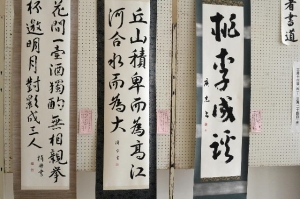 桃李成蹊
丘山積卑而為高江
河合水而為大
花間一壺酒獨酌無相親擧
杯邀明月對影成三人
者書道